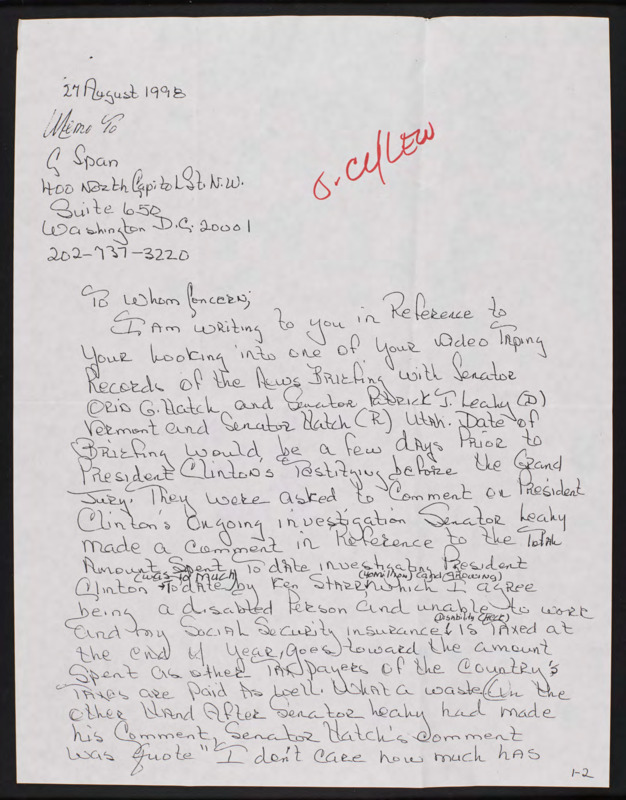 27 August 1998
Memo To
C Span
400 North Capitol St. N.W.
Suite 650
Washington D.C. 20001
202-737-3220
To Whom Concern;
I Am writing to you in Reference to
Your Looking into one of your video Taping
Records of the News Briefing with Senator
Orin G. Hatch and Senator Patrick J. Leahy (D)
Vermont and Senator Hatch (R) Utah. Date of
Briefing would be a few days Prior to
President Clinton's Testifying before the Grand
Jury. They were asked to Comment on President
Clinton's Ongoing investigation Senator Leahy
made a comment in Reference to the Total
Amount Spent To date investigating President
Clinton (was To Much) To date by Ken Starr (40 million) (and Growing) which I agree
being a disabled Person and unable to work
and my Social Security insurance (Disability Check) is Taxed at
the end of year, goes toward the amount
Spent as other Tax payers of the Country's
Taxes are paid as well. What a waste. On the
other Hand After Senator Leahy had made
his Comment, Senator Hatch's comment
was quote "I don't care how much has
1-2